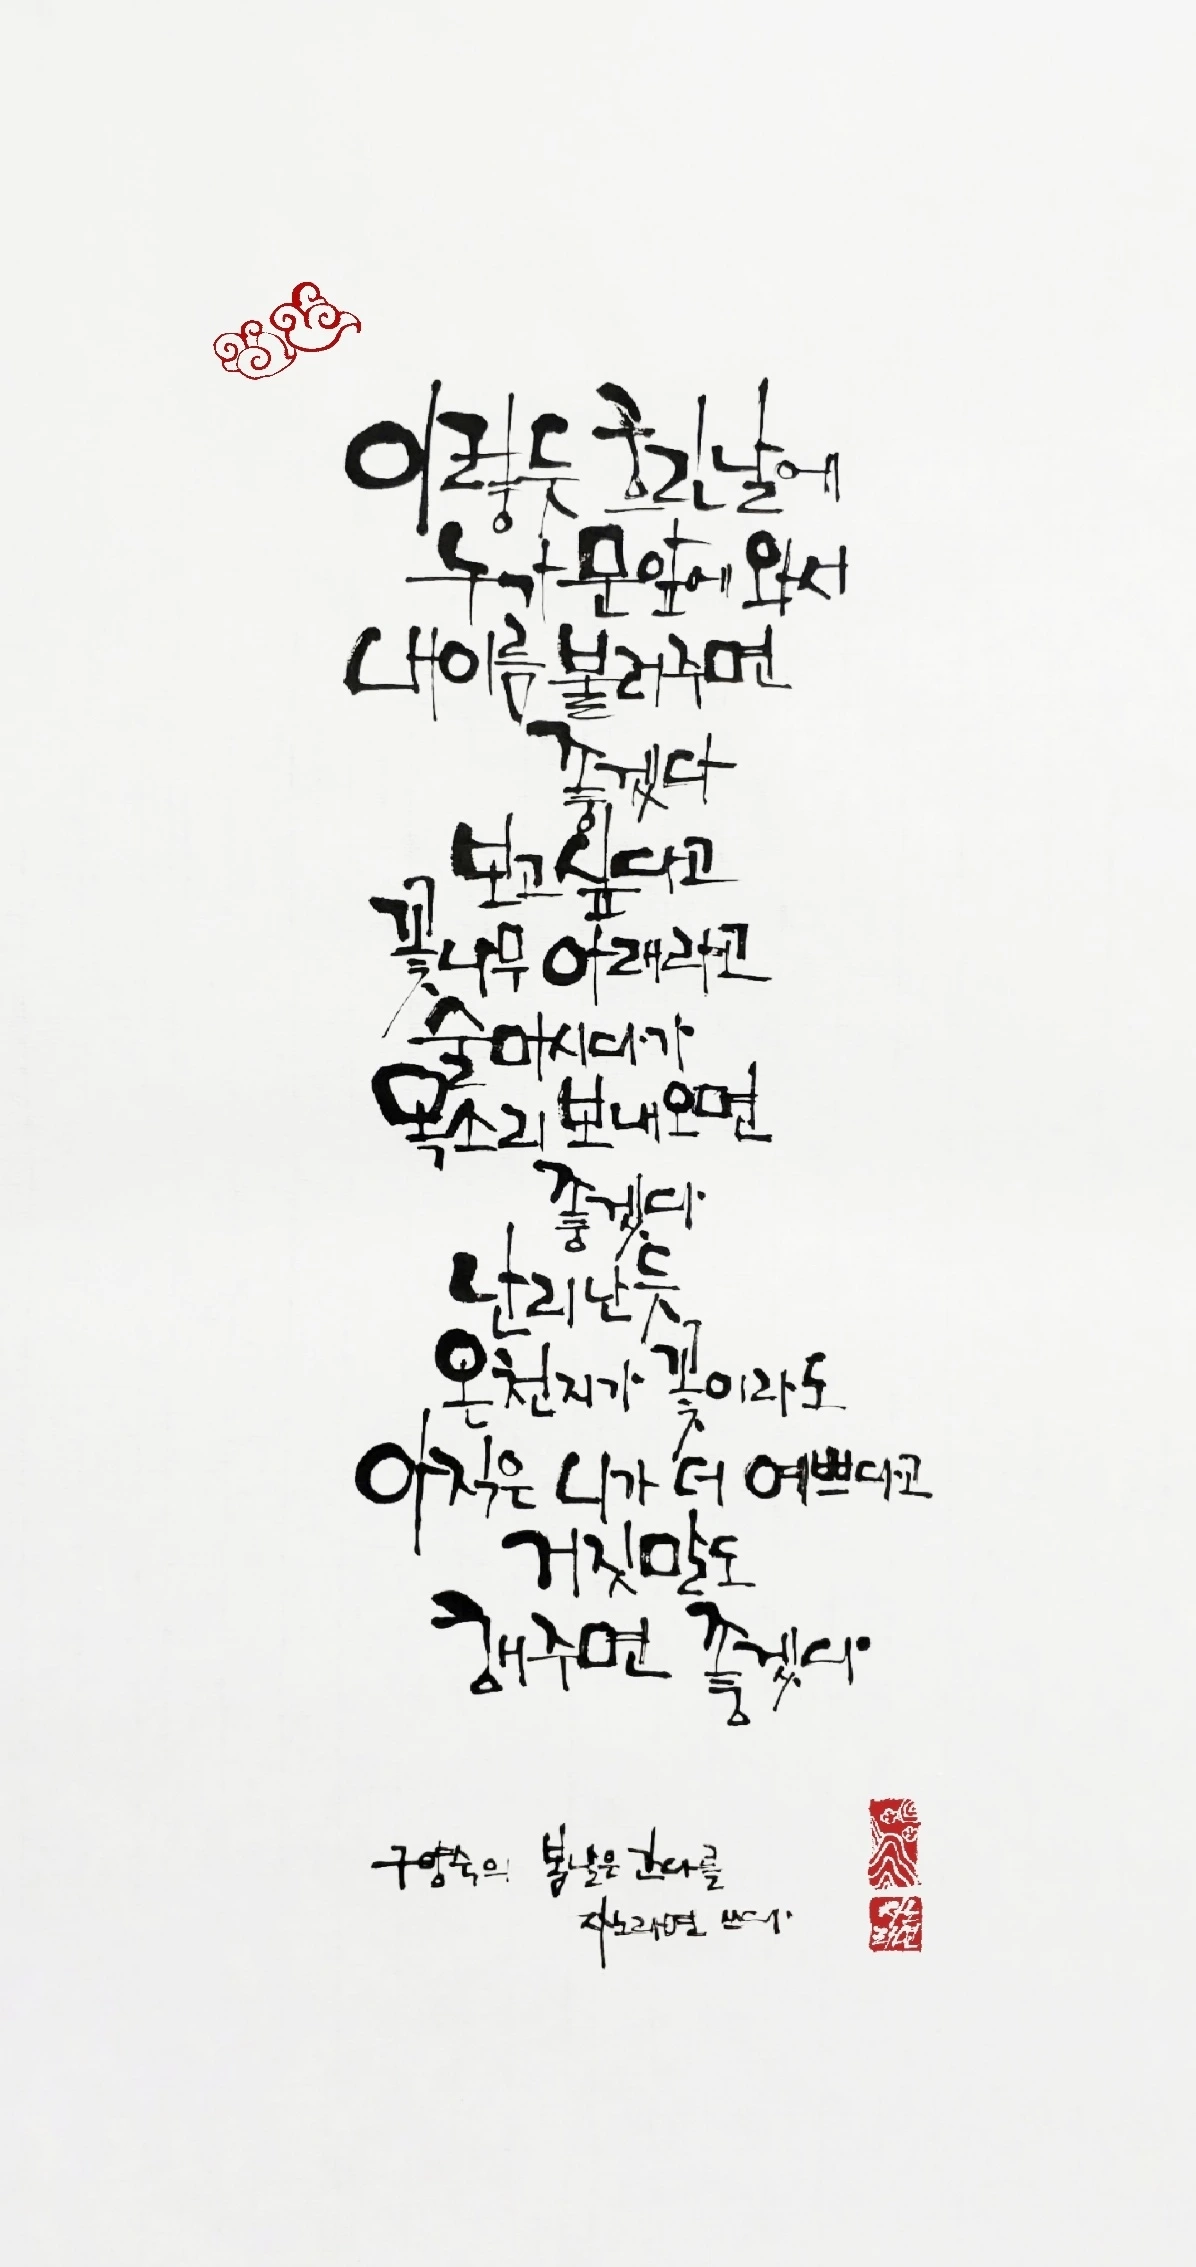 이렇듯 흐린날에
누가 문앞에 와서
내이름 불러주면
좋겠다
보고싶다고
꽃나무 아래라고
술마시다가
목소리 보내오면
좋겠다
난리난듯
온천지가 꽃이라도
아직은 니가 더 예쁘다고
거짓말도
해주면 좋겠다
구양숙의 봄날은 간다를
쓰다